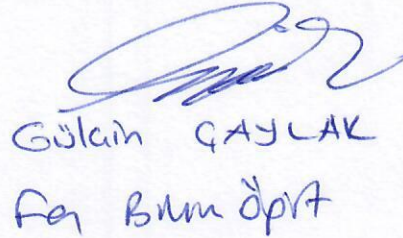 Gülçin ÇAYLAK
Fen Bilim Öğrt